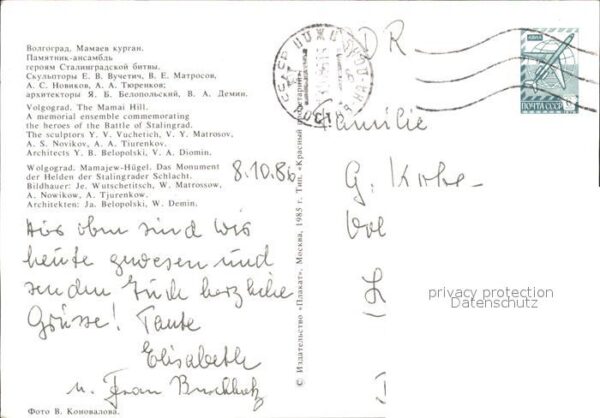 Волгоград. Мамаев курган.
Памятник-ансамбль
героям Сталинградской битвы.
Скульпторы Е. В. Вучетич, В. Е. Матросов,
А. С. Новиков, А. А. Тюренков;
архитекторы Я. Б. Белопольский, В. А. Демин.
Volgograd. The Mamai Hill.
A memorial ensemble commemorating
the heroes of the Battle of Stalingrad.
The sculptors Y. V. Vuchetich, V. Y. Matrosov,
A. S. Novikov, A. A. Tiurenkov.
Architects Y. B. Belopolski, V. A. Diomin.
Wolgograd. Mamajew-Hügel. Das Monument
der Helden der Stalingrader Schlacht.
Bildhauer: Je. Wutschetitsch, W. Matrossow,
A. Nowikow, A. Tjurenkow.
Architekten: Ja. Belopolski, W. Demin.
8.10.86
Hier oben sind wir
heute gewesen und
senden Euch herzliche
Grüsse! Tante
Elisabeth
u. Frau
Фото В. Коновалова.
© Издательство «Плакат». Москва, 1985 г. Тип. «Красный
СССР
DDR
АВИА
ПОЧТА СССР
Familie
G. Kohe-
privacy protection
Datenschutz